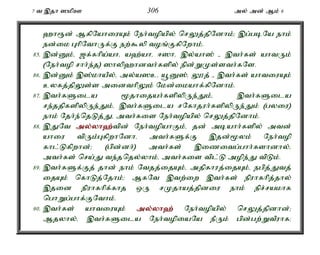 7 வ இதா ஸமிஊ 306 அல் அன் ஆம் 6
ஹாரூன் ஆகியோரையும் நேர்வழியில் செலுத்தினோம்; இப்படியே நாம்
நன்மை புரிவோருக்கு நற்கூலி வழங்குகிறோம்.
85. இன்னும், ஜக்கரிய்யா, யஹ்யா, ஈஸா, இல்யாஸ் - இவர்கள் யாவரும்
(நேர்வழி சார்ந்த) ஸாலிஹானவர்களில் நின்றுமுள்ளவர்களே.
86. இன்னும் இஸ்மாயீல், அல்யஸஉ, யூனுஸ், லூத் - இவர்கள் யாவரையும்
உலகத்திலுள்ள அனைவரிலும் மேன்மையாக்கினோம்.
87. இவர்களுடைய மூதாதையர்களிலிருந்தும், இவர்களுடைய
சந்ததிகளிலிருந்தும், இவர்களுடைய சகோதரர்களிலிருந்தும் (பலரை)
நாம் தேர்ந்தெடுத்து, அவர்களை நேர்வழியில் செலுத்தினோம்.
88. இதுவே அல்லாஹ்வின் நேர்வழியாகும், தன் அடியார்களில் அவன்
யாரை விரும்புகிறானோ, அவர்களுக்கு இதன்மூலம் நேர்வழி
காட்டுகிறான்; (பின்னர்) அவர்கள் இணைவைப்பார்களானால்,
அவர்கள் செய்து வந்ததெல்லாம், அவர்களை விட்டு அழிந்து விடும்.
89. இவர்களுக்குத் தான் நாம் வேதத்தையும், அதிகாரத்தையும், நபித்துவத்
தையும் கொடுத்தோம்; ஆகவே இவற்றை இவர்கள் நிராகரித்தால்
இதனை நிராகரிக்காத ஒரு சமுதாயத்தினரை நாம் நிச்சயமாக
பொறுப்பாக்குவோம்.
90. இவர்கள் யாவரையும் அல்லாஹ் நேர்வழியில் செலுத்தினான்;
ஆதலால், இவர்களுடைய நேர்வழியையே நீரும் பின்பற்றுவீராக;